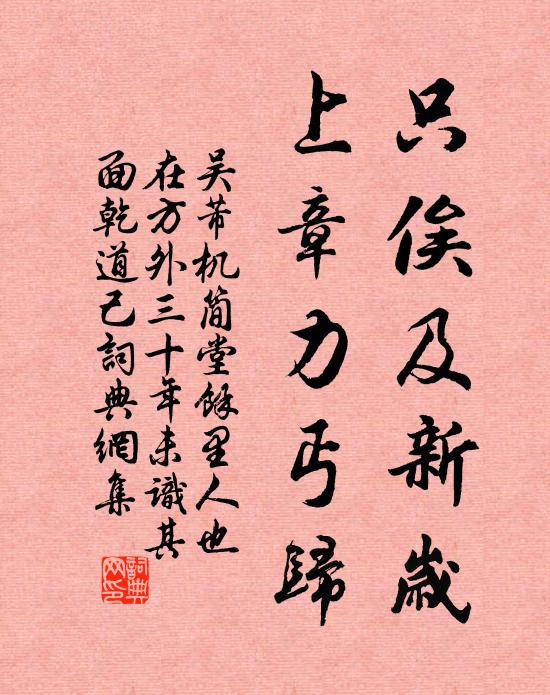 只俟及新歲
上章力丐歸
吴芾机简堂餘里人也
在方外三十年未識其
面乾道己詞典網集
詞典网印